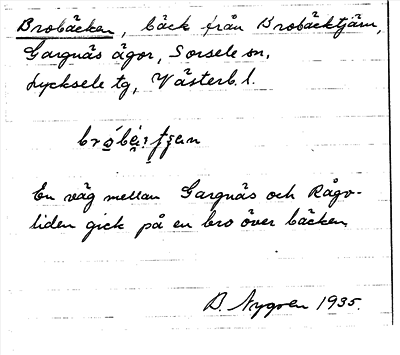 Brobäcken, bäck från Brobäcktjärn,
Gargnäs ägor, Sorsele sn,
Lycksele tg, Västerb. l.
En väg mellan Gargnäs och Rågo-
liden gick på en bro över bäcken.
B. Nygren 1935.